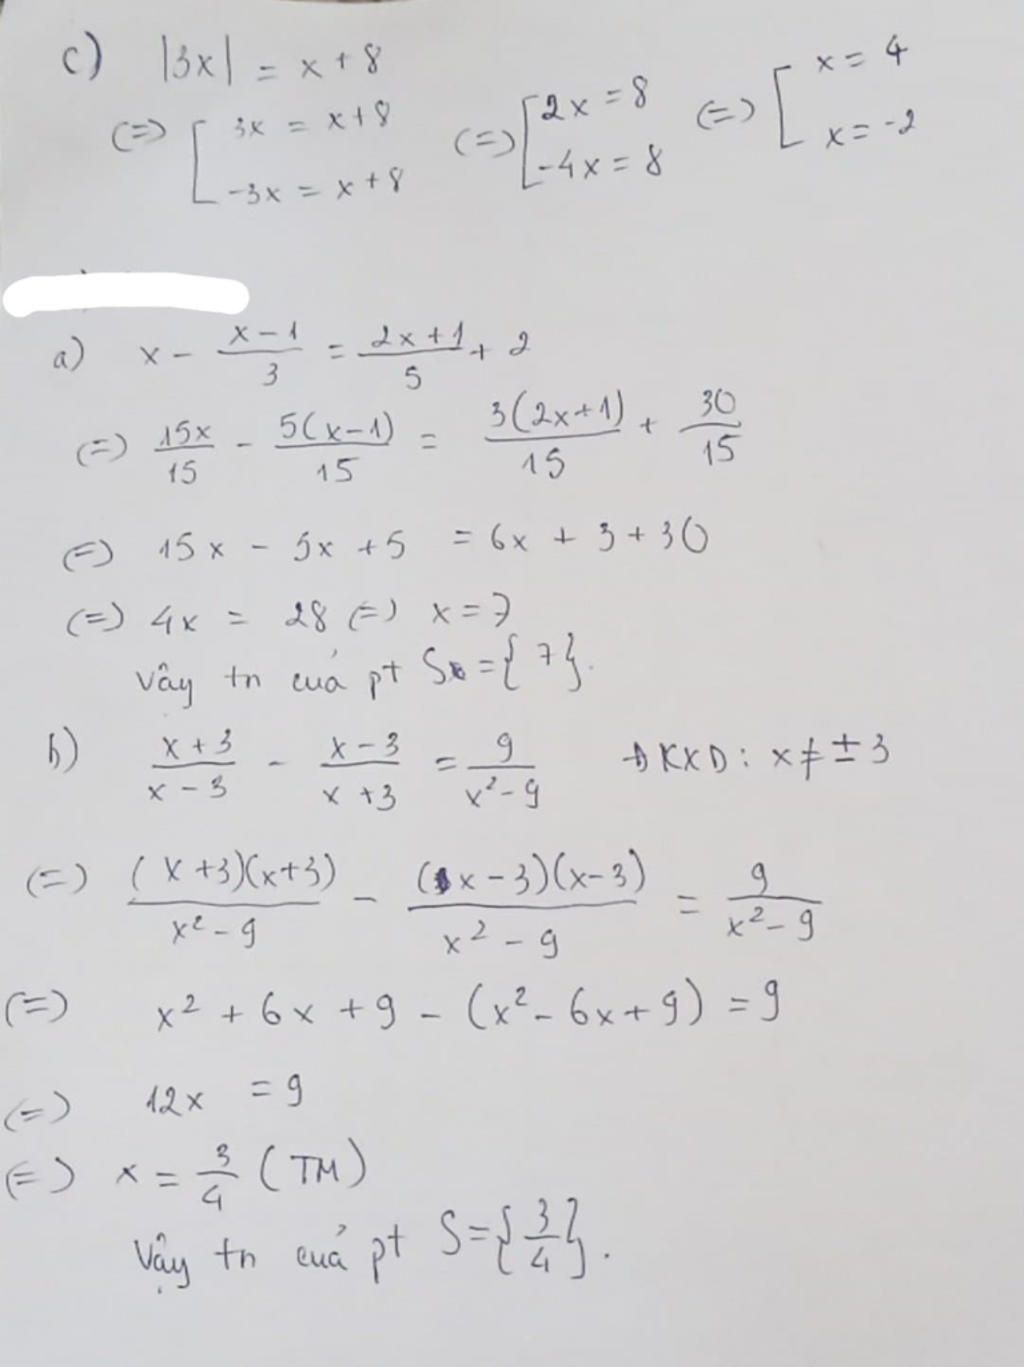 c) |3x| = x + 8
(=) [ 3x = x + 8 ; -3x = x + 8 (=) [ 2x = 8 ; -4x = 8 (=) [ x = 4 ; x = -2
a) x - (x - 1)/3 = (2x + 1)/5 + 2
(=) 15x/15 - 5(x - 1)/15 = 3(2x + 1)/15 + 30/15
(=) 15x - 5x + 5 = 6x + 3 + 30
(=) 4x = 28 (=) x = 7
Vậy tn cuả pt S = {7}.
b) (x + 3)/(x - 3) - (x - 3)/(x + 3) = 9/(x² - 9) ĐKXD: x ≠ ± 3
(=) (x + 3)(x + 3)/(x² - 9) - (x - 3)(x - 3)/(x² - 9) = 9/(x² - 9)
(=) x² + 6x + 9 - (x² - 6x + 9) = 9
(=) 12x = 9
(=) x = 3/4 (TM)
Vậy tn cuả pt S = {3/4}.